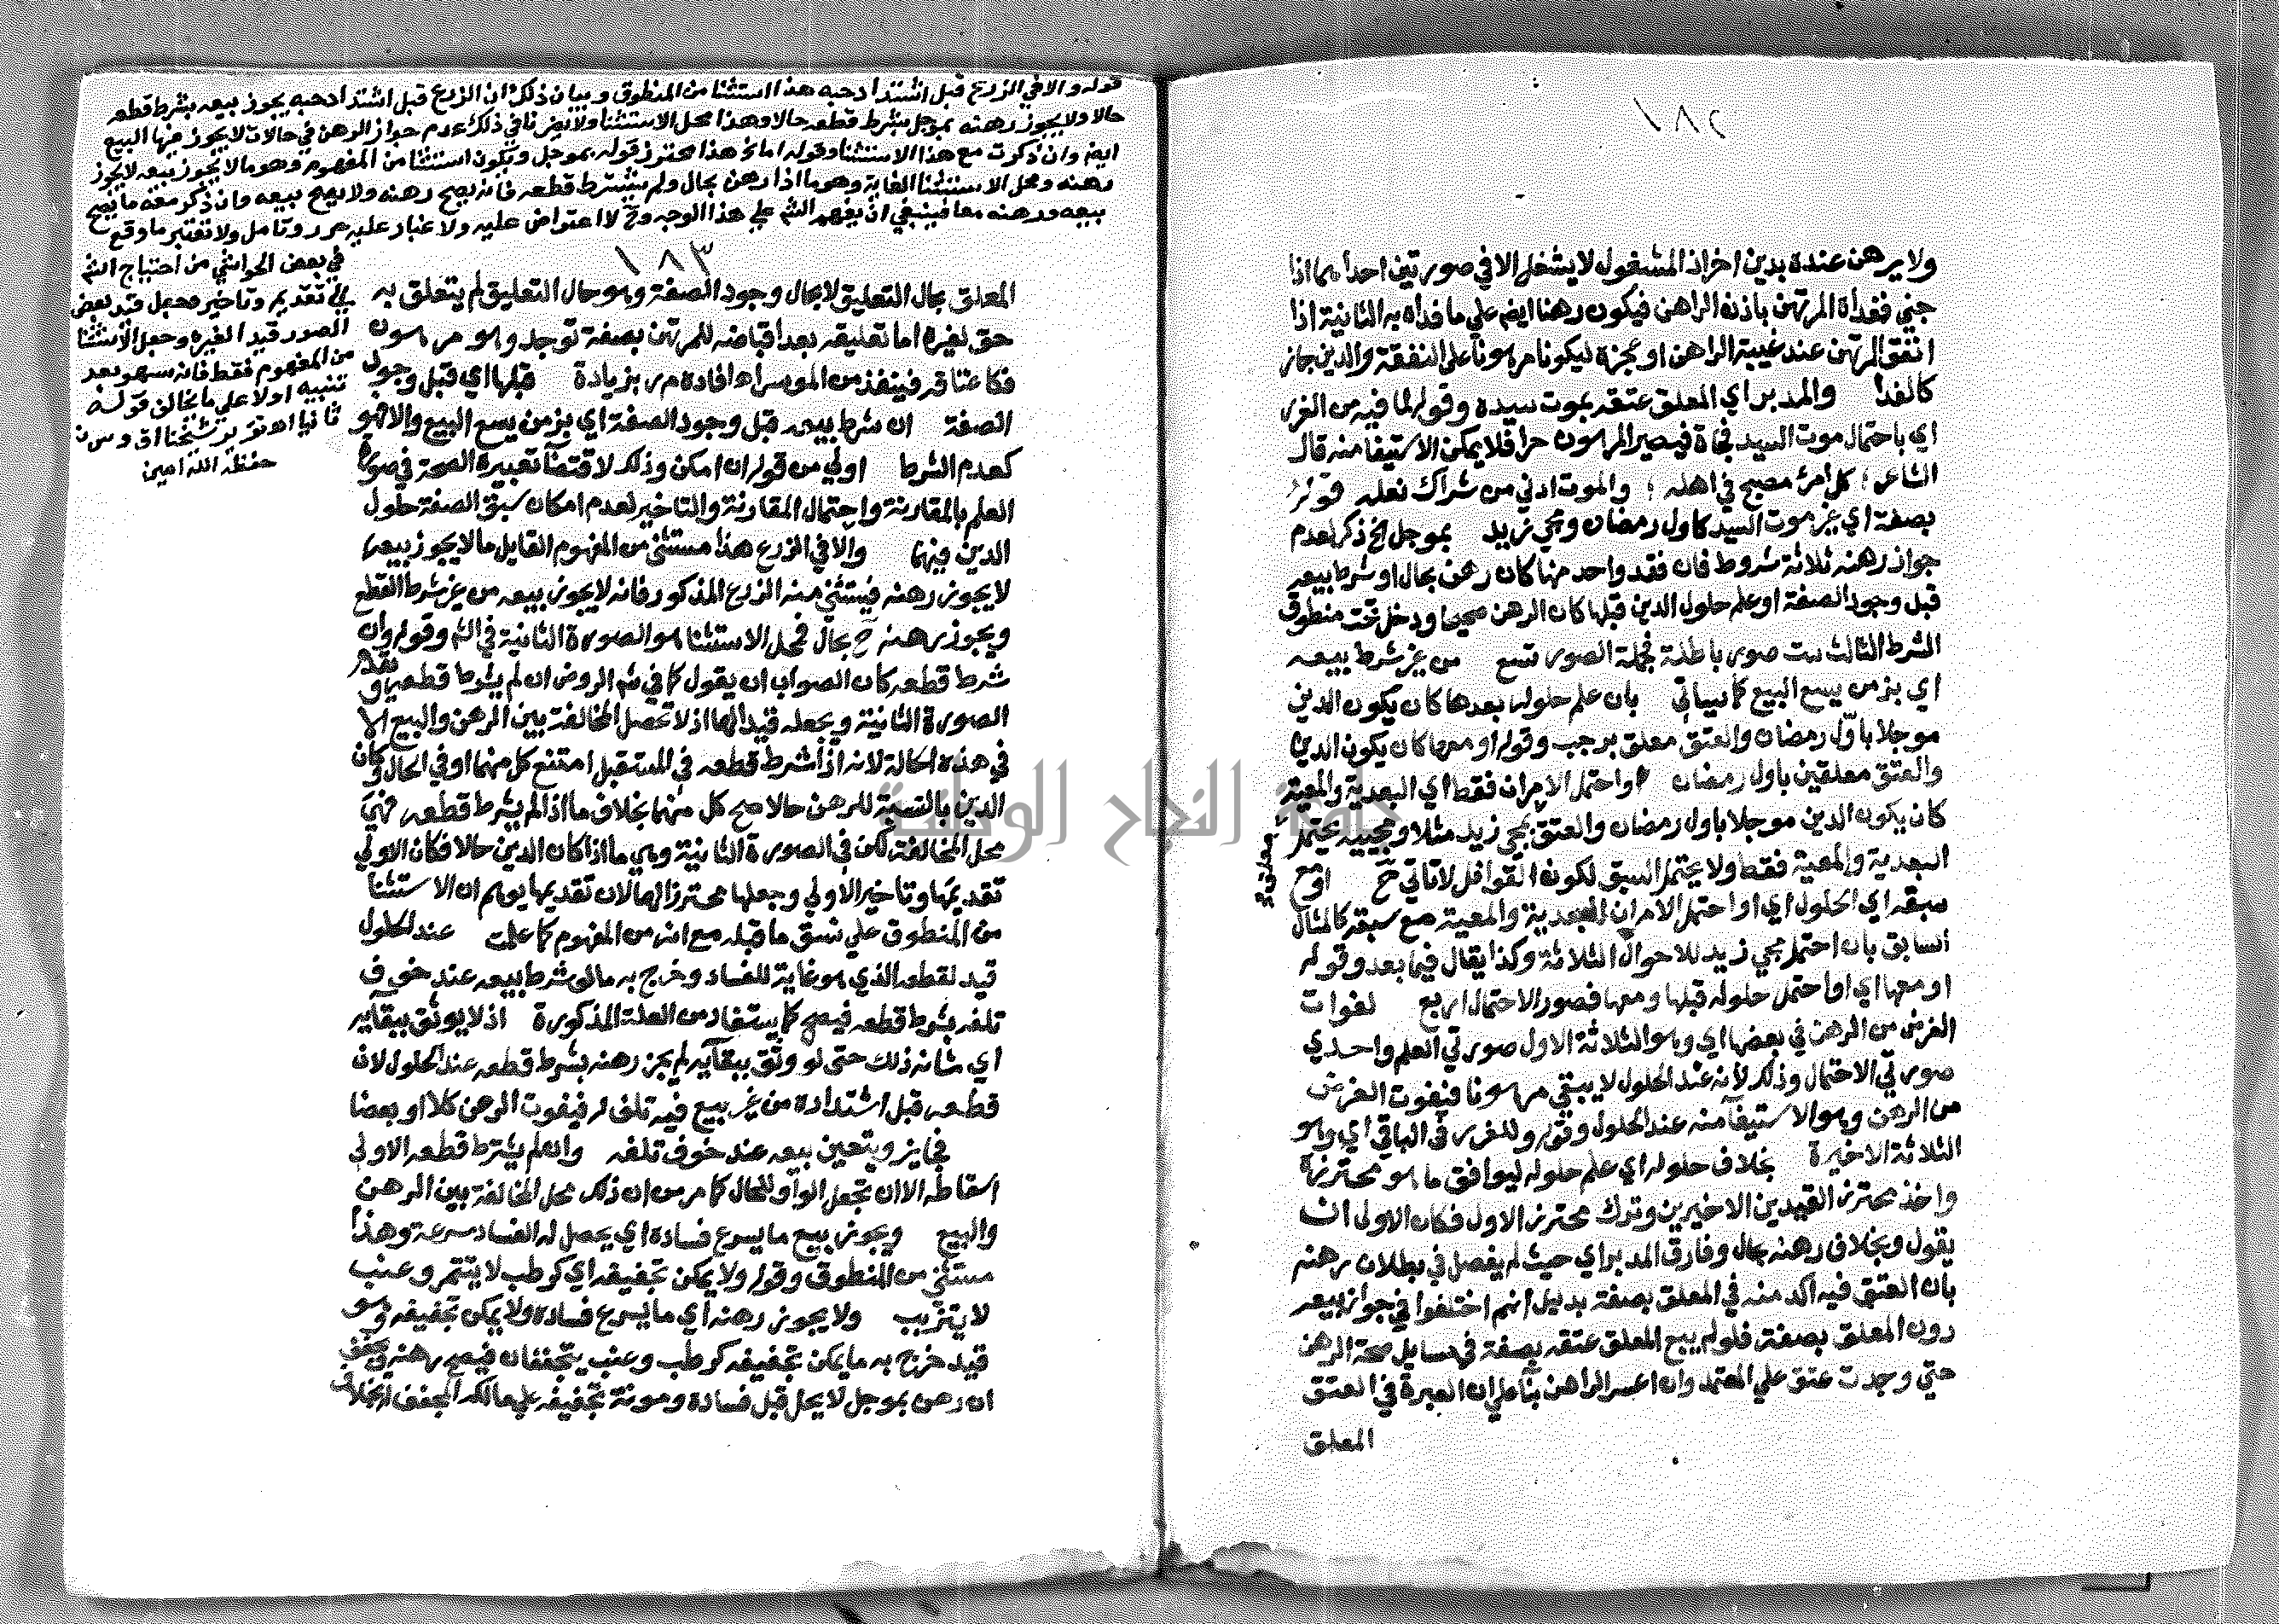 ١٨٢
ولا يرهن عنده بدين اخر اذ المشغول لا يشغل الا في صورتين احداهما اذا
جني ففداه المرتهن باذن الراهن فيكون رهنا ايضا علي ما فداه به الثانية اذا
انفق المرتهن عند غيبة الراهن او عجزه ليكون مرهونا علي النفقة والدين جاز
كالفدا والمدبر اي المعلق عتقه بموت سيده وقوله لما فيه من الغرر
اي باحتمال موت السيد فجاة فيصير المرهون حرا فلا يمكن الاستيفا منه قال
الشاعر ؛ كل امرئ مصبح في اهله ؛ والموت ادني من شراك نعله قوله
بصفة اي غير موت السيد كاول رمضان ومجي زيد بموجل الخ ذكر لعدم
جواز رهنه ثلاثة شروط فان فقد واحد منها كان رهن بحال او شرط بيعه
قبل وجود الصفة او علم حلول الدين قبلها كان الرهن صحيحا ودخل تحت منطوق
الشرط الثالث ست صور باطلة فجملة الصور تسع من غير شرط بيعه
اي بزمن يسع البيع كما سياتي بان علم حلوله بعدها كان يكون الدين
موجلا باول رمضان والعتق معلق برجب وقوله او معها كان يكون الدين
والعتق معلقين باول رمضان او احتمل الامران فقط اي البعدية والمعية
كان يكون الدين موجلا باول رمضان والعتق بمجي زيد مثلا ومجييه يحتمل
البعدية والمعية فقط ولا يحتمل السبق لكون القوافل لا تاتي ح او مع
سبقه اي الحلول اي او احتمل الامران البعدية والمعية مع سبقه كالمثال
السابق بان احتمل مجي زيد للاحوال الثلاثة وكذا يقال فيما بعد وقوله
او معها اي او احتمل حلوله قبلها ومعها فصور الاحتمال اربع لفوات
الغرض من الرهن في بعضها اي وهو الثلاثة الاول صورتي العلم واحدي
صورتي الاحتمال وذلك لانه عند الحلول لا يبقي مرهونا فيفوت الغرض
من الرهن وهو الاستيفا منه عند الحلول وقوله وللغرر في الباقي اي وهو
الثلاثة الاخيرة بخلاف حلوله اي علم حلوله ليوافق ما هو محترزه
واخذ محترز القيدين الاخيرين وترك محترز الاول فكان الاولي ان
يقول وبخلاف رهنه بحال وفارق المدبر اي حيث لم يفصل في بطلان رهنه
بان العتق فيه اكد منه في المعلق بصفة بدليل انهم اختلفوا في جواز بيعه
دون المعلق بصفة فلو لم يبع المعلق عتقه بصفة في مسايل صحة الرهن
حتي وجدت عتق علي المعتمد وان اعسر الراهن بنا علي ان العبرة في العتق
المعلق
قوله والا في الزرع قبل اشتداد حبه هذا استثنا من المنطوق وبيان ذلك ان الزرع قبل اشتداد حبه يجوز بيعه بشرط قطعه
حالا ولا يجوز رهنه بموجل بشرط قطعه حالا وهذا محل الاستثنا ولا يضرنا في ذلك عدم جواز الرهن في حالات لا يجوز فيها البيع
ايضا وان ذكرت مع هذا الاستثنا وقوله اما الخ هذا محترز قوله بموجل ويكون استثنا من المفهوم وهو ما لا يجوز بيعه لا يجوز
رهنه ومحل الاستثنا الغاية وهو ما اذا رهن بحال ولم يشترط قطعه فانه يصح رهنه ولا يصح بيعه وان ذكر معه ما يصح
بيعه ورهنه معا فينبغي ان يفهم الشم علي هذا الوجه وح لا اعتراض عليه ولا غبار عليه حرر وتامل ولا تغتر بما وقع
في بعض الحواشي من احتياج الشم
الي تقديم وتاخير فجعل قيد بعض
الصور قيدا لغيره وجعل الاستثنا
من المفهوم فقط فانه سهو بعد
تنبيه اولا علي ما يخالف قوله
ثانيا اه تقرير شيخنا
حفظه الله امين
١٨٣
المعلق بحال التعليق لا بحال وجود الصفة وهو حال التعليق لم يتعلق به
حق لغيره اما تعليقه بعد اقباضه للمرتهن بصفة توجد وهو مرهون
فكاعتاقه فينفذ من الموسر اه افاده م ر بزيادة قبلها اي قبل وجود
الصفة ان شرط بيعه قبل وجود الصفة اي بزمن يسع البيع والا فهو
كعدم الشرط اولي من قوله ان امكن وذلك لاقتضا تعبيره الصحة في صورة
العلم بالمقارنة واحتمال المقارنة والتاخير لعدم امكان سبق الصفة حلول
الدين فيهما والا في الزرع هذا مستثني من المفهوم القايل ما لا يجوز بيعه
لا يجوز رهنه فيستثني منه الزرع المذكور فانه لا يجوز بيعه من غير شرط القطع
ويجوز رهنه ح بحال فمحل الاستثنا هو الصورة الثانية في الشم وقوله وان
شرط قطعه كان الصواب ان يقول كما في شم الروض ان لم يشرط قطعه
الصورة الثانية ويجعله قيدا لها اذ لا تحصل المخالفة بين الرهن والبيع الا
في هذه الحالة لانه اذا شرط قطعه في المستقبل امتنع كل منهما او في الحال وكان
الدين بالنسبة للرهن حالا صح كل منهما بخلاف ما اذا لم يشرط قطعه فهي
محل المخالفة لكن في الصورة الثانية وهي ما اذا كان الدين حالا فكان الاولي
تقديمها وتاخير الاولي وجعلها محترزا لها لان تقديمها يوهم ان الاستثنا
من المنطوق علي نسق ما قبله مع انه من المفهوم كما علمت عند الحلول
قيد لقطعه الذي هو غاية للفساد وخرج به ما لو شرط بيعه عند خوف
تلفه بشرط قطعه فيصح كما يستفاد من العلة المذكورة اذ لا يوثق ببقايه
اي شانه ذلك حتي لو وثق ببقايه لم يجز رهنه بشرط قطعه عند الحلول لان
قطعه قبل اشتداده من غير بيع فيه تلف له فيفوت الرهن كلا او بعضا
فجايز ويتعين بيعه عند خوف تلفه وان لم يشترط قطعه الاولي
اسقاطه الا ان تجعل الواو للحال كما مر من ان ذلك محل المخالفة بين الرهن
والبيع ويجوز بيع ما يسرع فساده اي يحصل له الفساد سرعة وهذا
مستثني من المنطوق وقوله ولا يمكن تجفيفه اي كرطب لا يتتمر وعنب
لا يتزبب ولا يجوز رهنه اي ما يسرع فساده ولا يمكن تجفيفه وهو
قيد خرج به ما يمكن تجفيفه كرطب وعنب يتجففان فيصح رهنه
ان رهن بموجل لا يحل قبل فساده ومونة تجفيفه علي مالكه المجفف له بخلاف
جامعة النجاح الوطنية